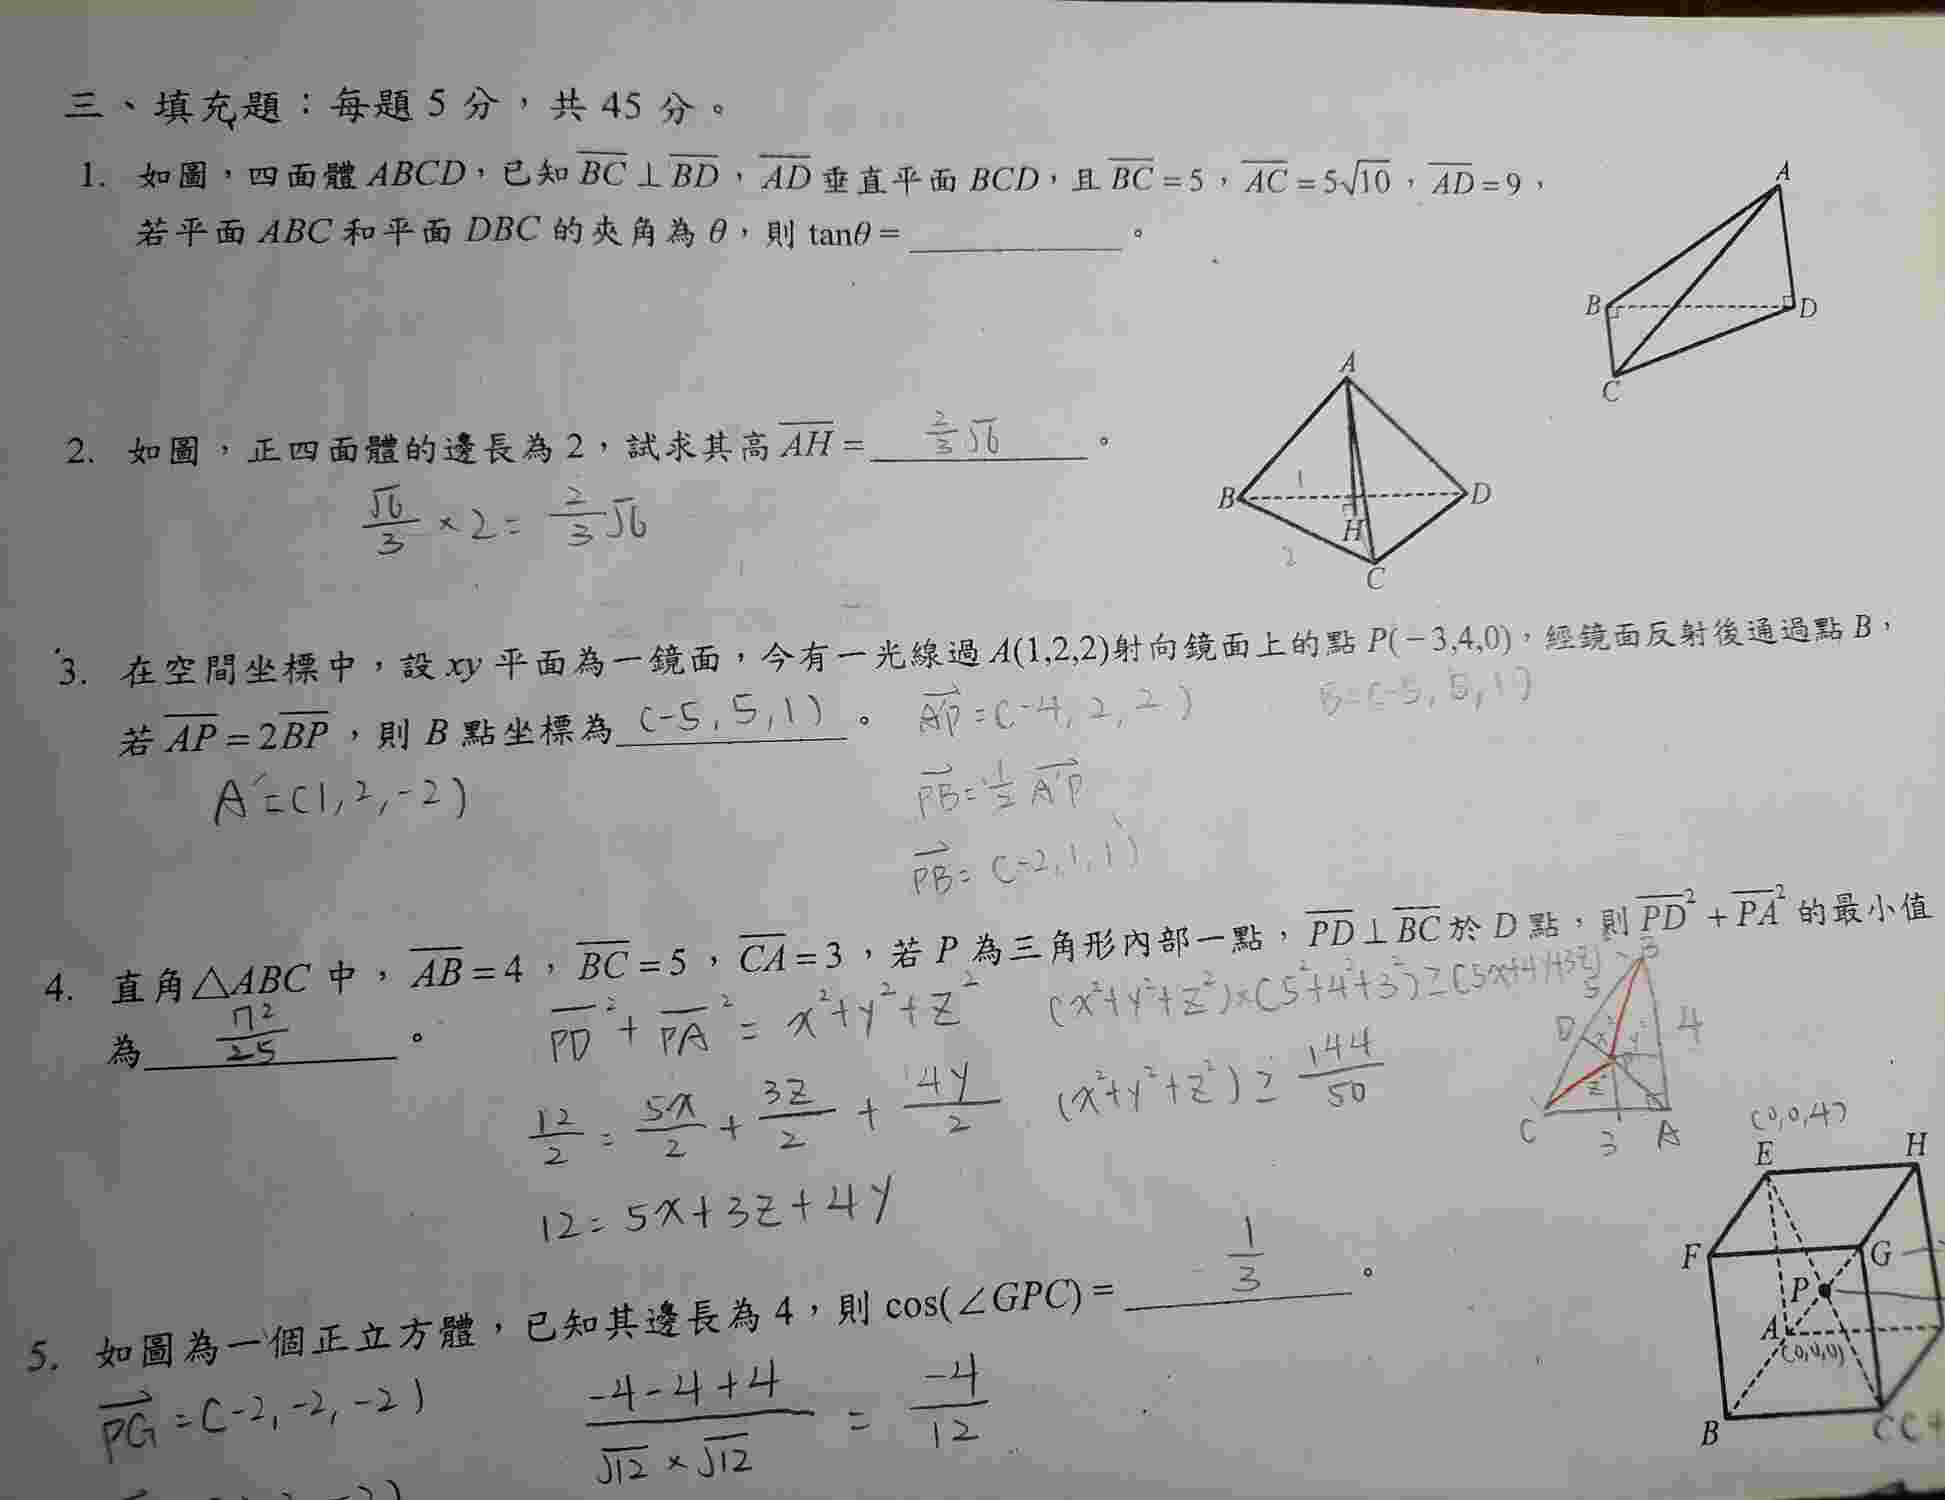 三、填充題：每題 5 分，共 45 分。
1. 如圖，四面體 ABCD，已知 BC ⊥ BD，AD 垂直平面 BCD，且 BC = 5，AC = 5√10，AD = 9，
若平面 ABC 和平面 DBC 的夾角為 θ，則 tanθ = ________。
A
B
D
C
2. 如圖，正四面體的邊長為 2，試求其高 AH = 2/3 √6。
√6/3 × 2 = 2/3 √6
A
B
1
D
H
2
C
3. 在空間坐標中，設 xy 平面為一鏡面，今有一光線過 A(1,2,2)射向鏡面上的點 P(−3,4,0)，經鏡面反射後通過點 B，
若 AP = 2BP，則 B 點坐標為 (-5, 5, 1)。
A'P = (-4, 2, 2)
B = (-5, 5, 1)
A' = (1, 2, -2)
PB = 1/2 A'P
PB = (-2, 1, 1)
4. 直角△ABC 中，AB = 4，BC = 5，CA = 3，若 P 為三角形內部一點，PD ⊥ BC 於 D 點，則 PD² + PA² 的最小值
為 72/25。
PD² + PA² = x² + y² + z²
(x²+y²+z²)×(5²+4²+3²) ≥ (5x+4y+3z)²
12/2 = 5x/2 + 3z/2 + 4y/2
(x²+y²+z²) ≥ 144/50
12 = 5x + 3z + 4y
B
5
D
4
C
3
A
5. 如圖為一個正立方體，已知其邊長為 4，則 cos(∠GPC) = -1/3。
PG = (-2, -2, -2)
-4-4+4 / √12 × √12 = -4/12
(0,0,4)
E
H
F
G
P
A
(0,0,0)
B
C